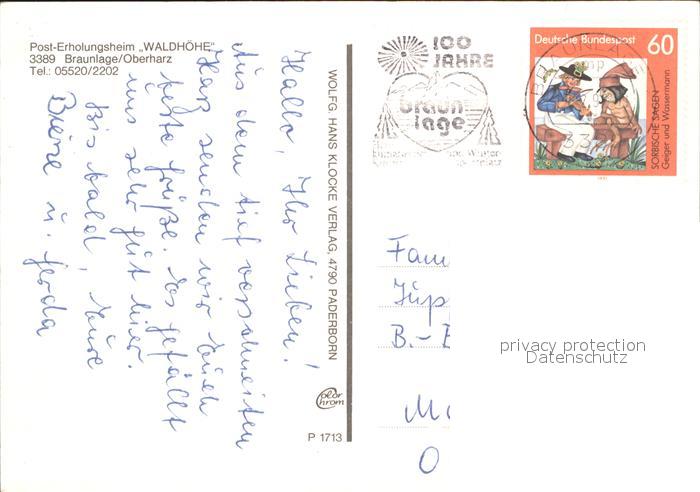 Post-Erholungsheim „WALDHÖHE"
3389 Braunlage/Oberharz
Tel.: 05520/2202
Hallo, Ihr Lieben!
Aus dem tief verschneiten
Harz senden wir Euch
liebe Grüße. Es gefällt
uns sehr gut hier.
Bis bald, Eure
u. Gerda
WOLFG. HANS KLOCKE VERLAG, 4790 PADERBORN
Color
Chrom
P 1713
100
JAHRE
braun
lage
Deutsche Bundespost 60
SORBISCHE SAGEN
Geiger und Wassermann
Fam
Jüp
B.-
M
O
privacy protection
Datenschutz